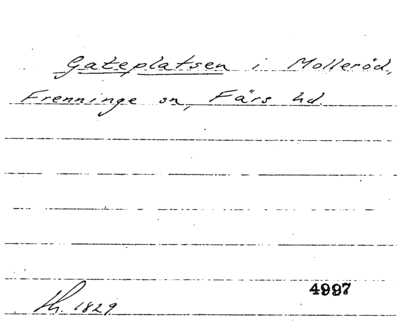 Gateplatsen i Molleröd,
Frenninge sn, Färs hd.
4997
th. 1829